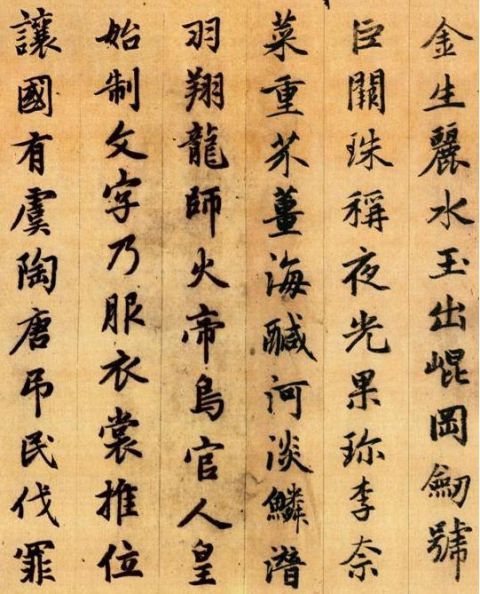 金生麗水玉出崐岡劒號
巨闕珠稱夜光果珎李柰
菜重芥薑海醎河淡鱗潛
羽翔龍師火帝鳥官人皇
始制文字乃服衣裳推位
讓國有虞陶唐吊民伐罪